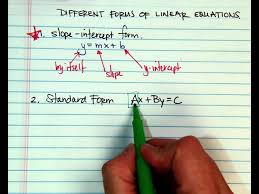 DIFFERENT FORMS OF LINEAR EQUATIONS
1. slope-intercept form.
y = mx + b
by itself slope y-intercept
2. Standard Form Ax + By = C